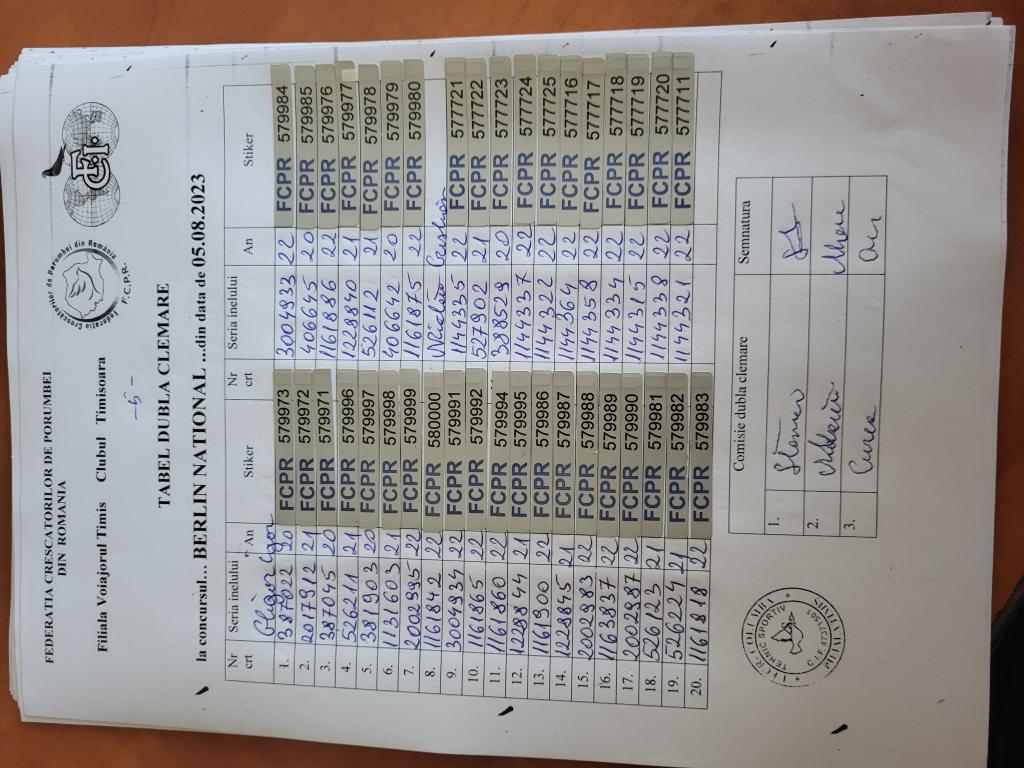 FEDERATIA CRESCATORILOR DE PORUMBEI
DIN ROMANIA
Federatia Crescatorilor de Porumbei din România
F.C.P.R.
FCI
Filiala Voiajorul Timis Clubul Timisoara
-5-
TABEL DUBLA CLEMARE
la concursul... BERLIN NATIONAL ...din data de 05.08.2023
Nr crt Seria inelului An Stiker Nr crt Seria inelului An Stiker
1. 387022 20 FCPR 579973 3004933 22 FCPR 579984
2. 2017912 21 FCPR 579972 406645 20 FCPR 579985
3. 387045 20 FCPR 579971 1161886 22 FCPR 579976
4. 526211 21 FCPR 579996 1228840 21 FCPR 579977
5. 381903 20 FCPR 579997 526112 21 FCPR 579978
6. 1131603 21 FCPR 579998 406642 20 FCPR 579979
7. 2002995 22 FCPR 579999 1161875 22 FCPR 579980
8. 1161842 22 FCPR 580000
9. 3004934 22 FCPR 579991 1144335 22 FCPR 577721
10. 1161865 22 FCPR 579992 527902 21 FCPR 577722
11. 1161860 22 FCPR 579994 388529 20 FCPR 577723
12. 1228844 21 FCPR 579995 1144337 22 FCPR 577724
13. 1161900 22 FCPR 579986 1144322 22 FCPR 577725
14. 1228845 21 FCPR 579987 1144364 22 FCPR 577716
15. 2002983 22 FCPR 579988 1144358 22 FCPR 577717
16. 1163837 22 FCPR 579989 1144334 22 FCPR 577718
17. 2002987 22 FCPR 579990 1144315 22 FCPR 577719
18. 526123 21 FCPR 579981 1144338 22 FCPR 577720
19. 526224 21 FCPR 579982 1144321 22 FCPR 577711
20. 1161818 22 FCPR 579983
Comisie dubla clemare Semnatura
1.
2.
3.
TEHNIC SPORTIV